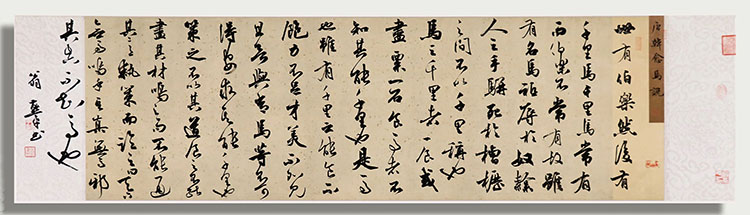 唐韓愈馬說
世有伯樂然後有
千里馬千里馬常有
而伯樂不常有故雖
有名馬祗辱於奴隸
人之手駢死於槽櫪
之間不以千里稱也
馬之千里者一食或
盡粟一石食馬者不
知其能千里也是馬
也雖有千里之能食不
飽力不足才美不外見
且欲與常馬等不可
得安求其能千里也
策之不以其道食之不能
盡其材鳴之而不能通
其意執策而臨之曰天下
無馬嗚呼其真無馬邪
其真不知馬也
翁